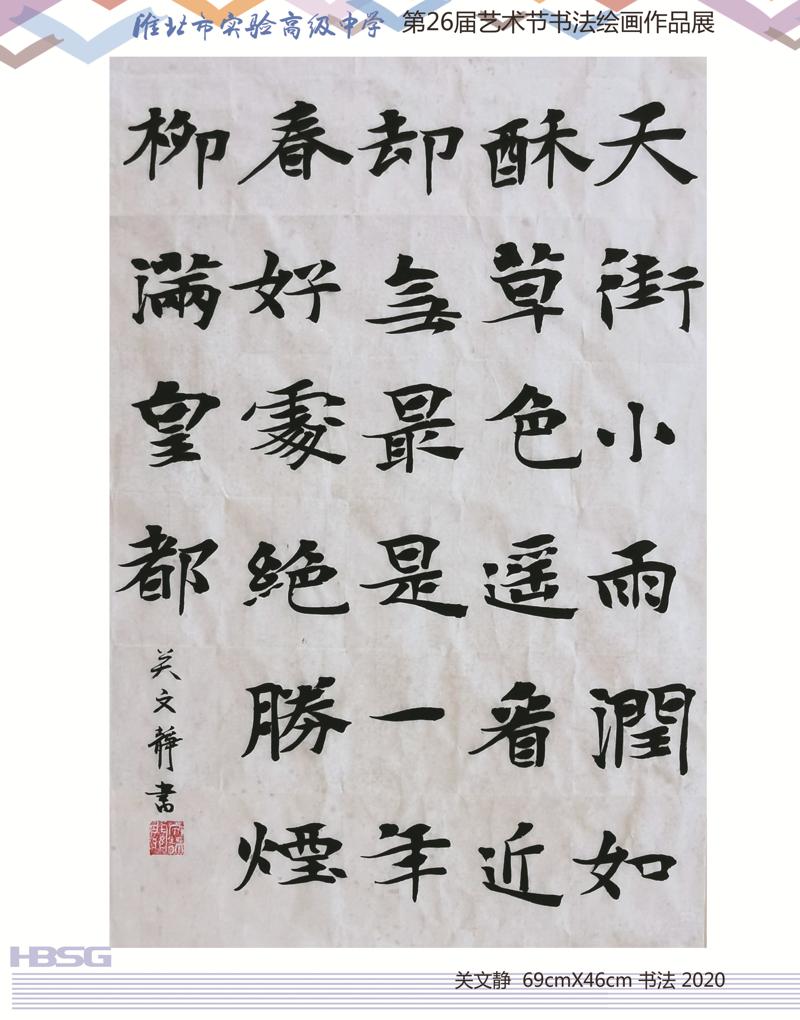 淮北市实验高级中学 第26届艺术节书法绘画作品展
天街小雨潤如
酥草色遥看近
却無最是一年
春好處絶勝煙
柳滿皇都
关文静書
HBSG
关文静 69cmX46cm 书法 2020